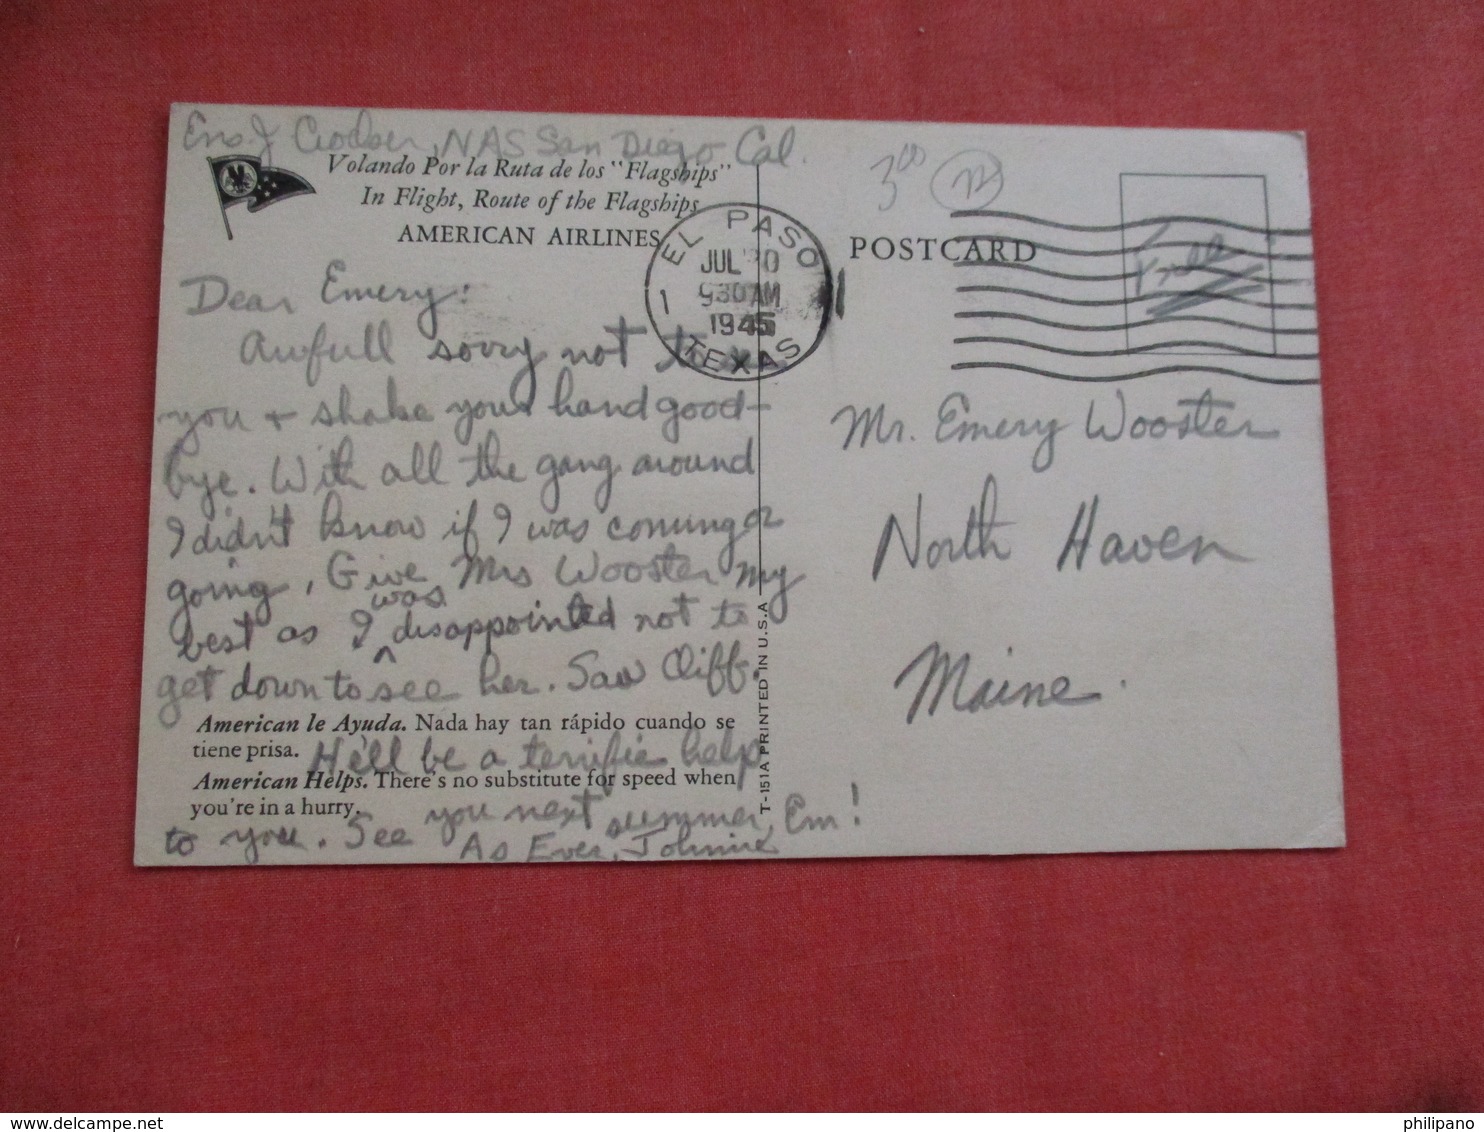 Ens J NAS San Diego Cal.
Volando Por la Ruta de los "Flagships"
In Flight, Route of the Flagships
AMERICAN AIRLINES
EL PASO
JUL 0
930 AM
1945
TEXAS
1
3 00
POSTCARD
Free
Dear Emery:
Awfull sorry not to
you + shake your hand good-
bye. With all the gang around
I didn't know if I was coming or
going, Give Mrs Wooster my
best as I was disappointed not to
get down to see her. Saw Cliff.
He'll be a terrific help
to you. See you next summer, Em!
As Ever, Johnnie
American le Ayuda. Nada hay tan rápido cuando se
tiene prisa.
American Helps. There's no substitute for speed when
you're in a hurry.
T-151A PRINTED IN U.S.A
Mr. Emery Wooster
North Haven
Maine.
delcampe.net
philipano